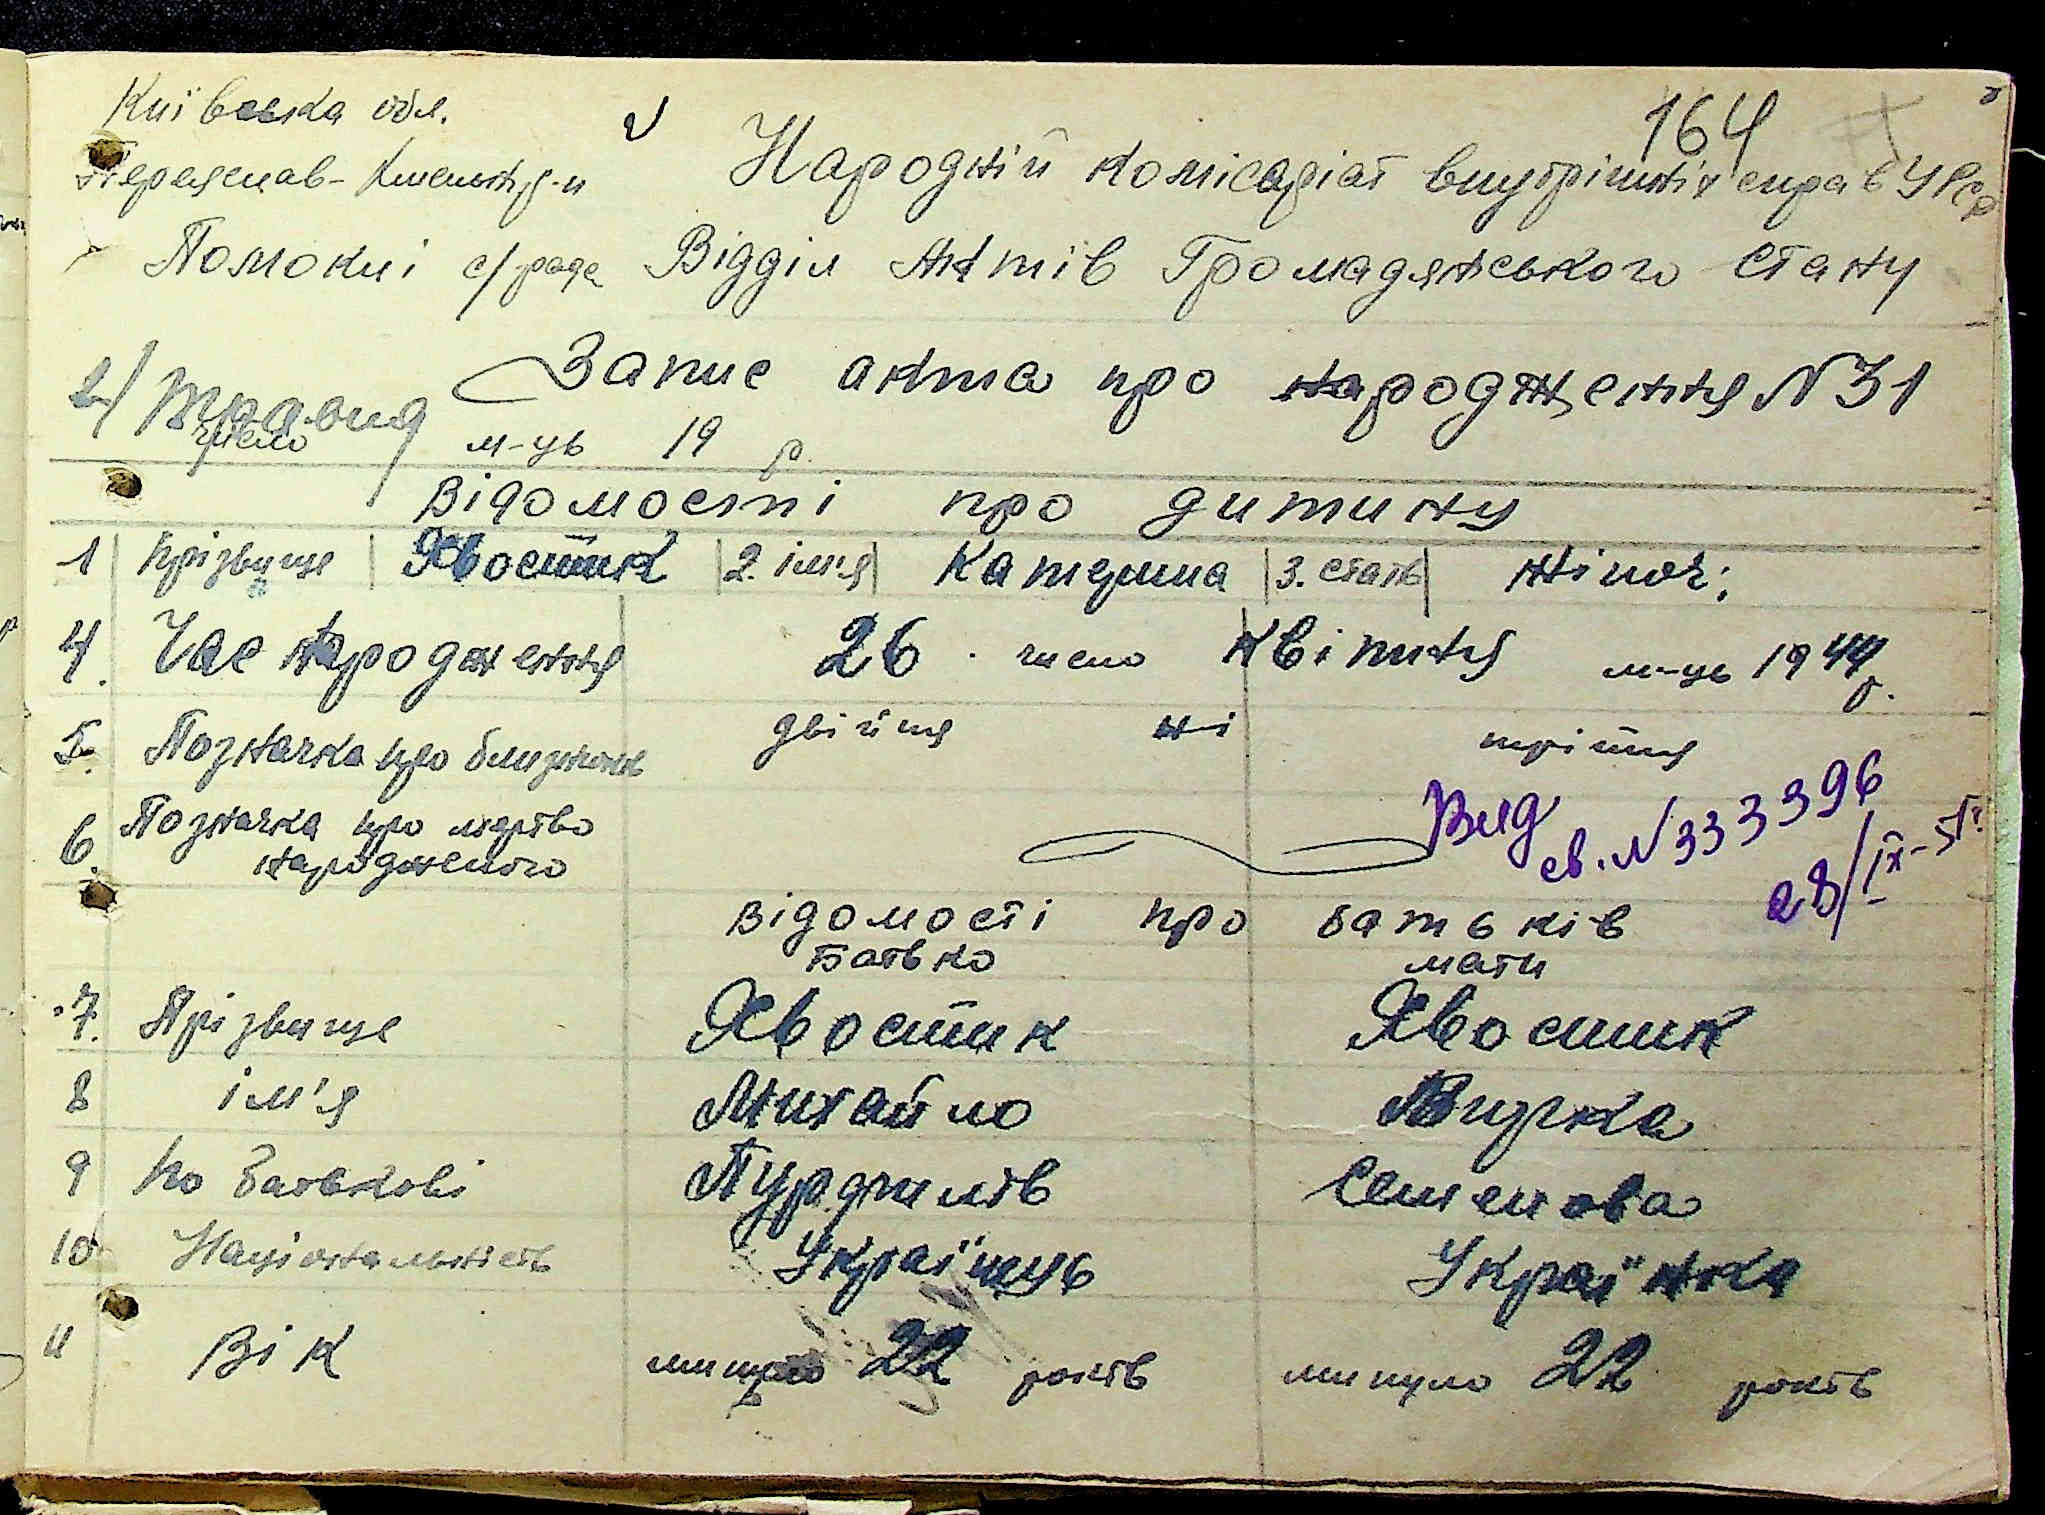 164
Київська обл.
Народній комісаріат внутрішніх справ УРСР
Помокиі с/рада Відділ Актів Громадянського Стану
Запис акта про народження N 31
2/ Травня
число м-ць 19 р.
Відомості про дитину
1 Прізвище Хвостик 2. ім'я Катерина 3. стать жіноч;
4. Час народження 26 число квітня м-ць 1944 р.
5. Позначка про близнюків двійня ні трійня
6. Позначка про мертво
народженого
Вид
св. N 333396
28/IX-
Відомості про батьків
Батько мати
7. Прізвище Хвостик Хвостик
8 ім'я Михайло
9 По батькові Семенова
10 Національність Українець Українка
11 Вік минуло 22 років минуло 22 років